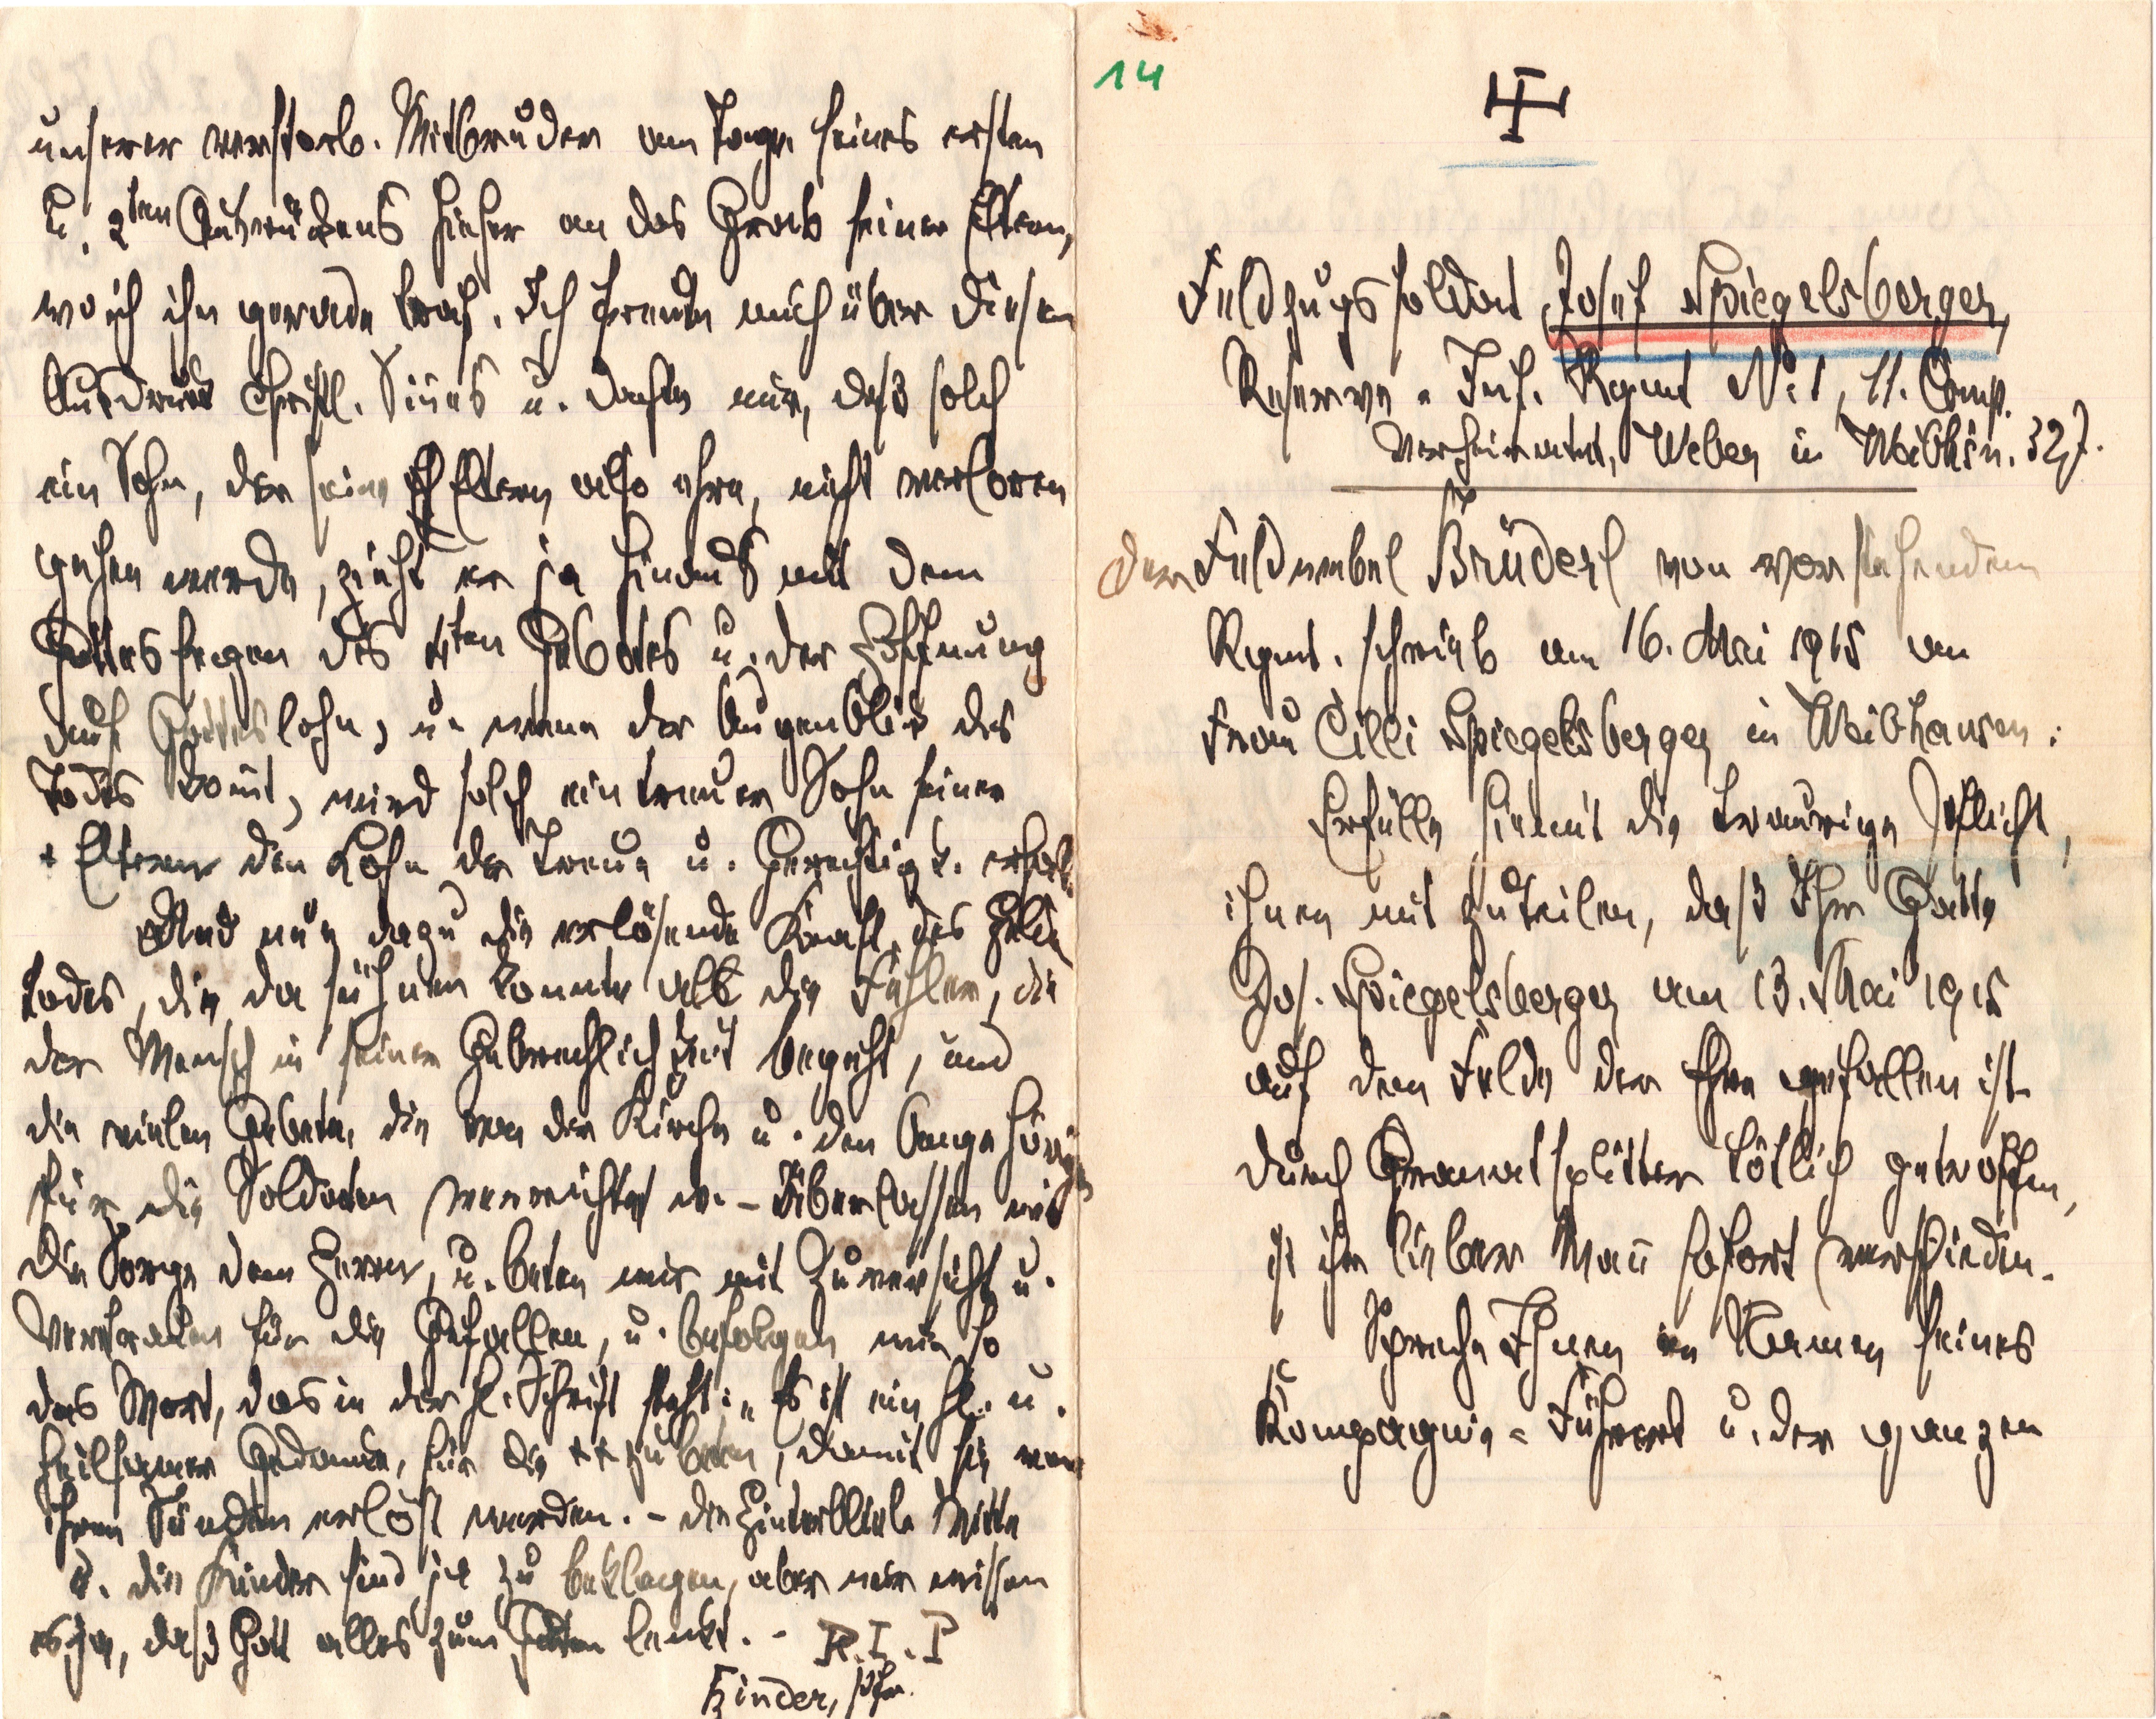 unserer verstorb. Mitbruder am Tage seines ersten
u. 2ten Ausrückens hieher an das Grab seiner Eltern,
wo ich ihn gerade traf. Ich freute mich über diesen
Ausdruck christl. Sinnes u. dachte mir, daß solch
ein Sohn, der seine Eltern also ehre, nicht verloren
gehen werde, zieht er ja hinaus mit dem
Gottessegen des 4ten Gebotes u. der Hoffnung
auf Gotteslohn, u. wenn der Augenblick des
Todes kommt, wird solch ein treuer Sohn seiner
+ Eltern den Lohn der Treue u. Gerechtigk. erhalt.
Und nun dazu die erlösende Kraft des Helden
todes, die da sühnen konnte all die Fehler, die
der Mensch in seiner Gebrechlichkeit begeht, und
die vielen Gebete, die von der Kirche u. den Angehörig
für die Soldaten verrichtet w. - Überlassen wir
die Sorge dem Herrn, u. beten wir mit Zuversicht u.
Vertrauen für die Gefallen, u. befolgen wir so
das Wort, das in der hl. Schrift steht: „Es ist ein hl. u.
heilsamer Gedanke, für die ++ zu beten, damit sie von
ihren Sünden erlöst werden. - die Hinterblieb. Witwe
u. die Kinder sind ja zu beklagen, aber wir wissen
es ja, daß Gott alles zum Guten lenkt. - R.I.P
Hinder, Pfr.
14
Feldzugssoldat Josef Spiegelsberger,
Reserve-Inf. Regmt No 1, 11. Comp.
verheiratet, Weber in Weibhsn. 32 J.
Der Feldwebel Brüderl von vorstehendem
Regmt. schrieb am 16. Mai 1915 an
Frau Cilli Spiegelsberger in Weibhausen:
Erfülle hiemit die traurige Pflicht,
ihnen mit zuteilen, daß Ihr Gatte
Jos. Spiegelsberger am 13. Mai 1915
auf dem Felde der Ehre gefallen ist
durch Granatsplitter tötlich getroffen,
ist ihr lieber Mann sofort verschieden.
Spreche Ihnen im Namen seines
Kompagnie-Führers u. der ganzen